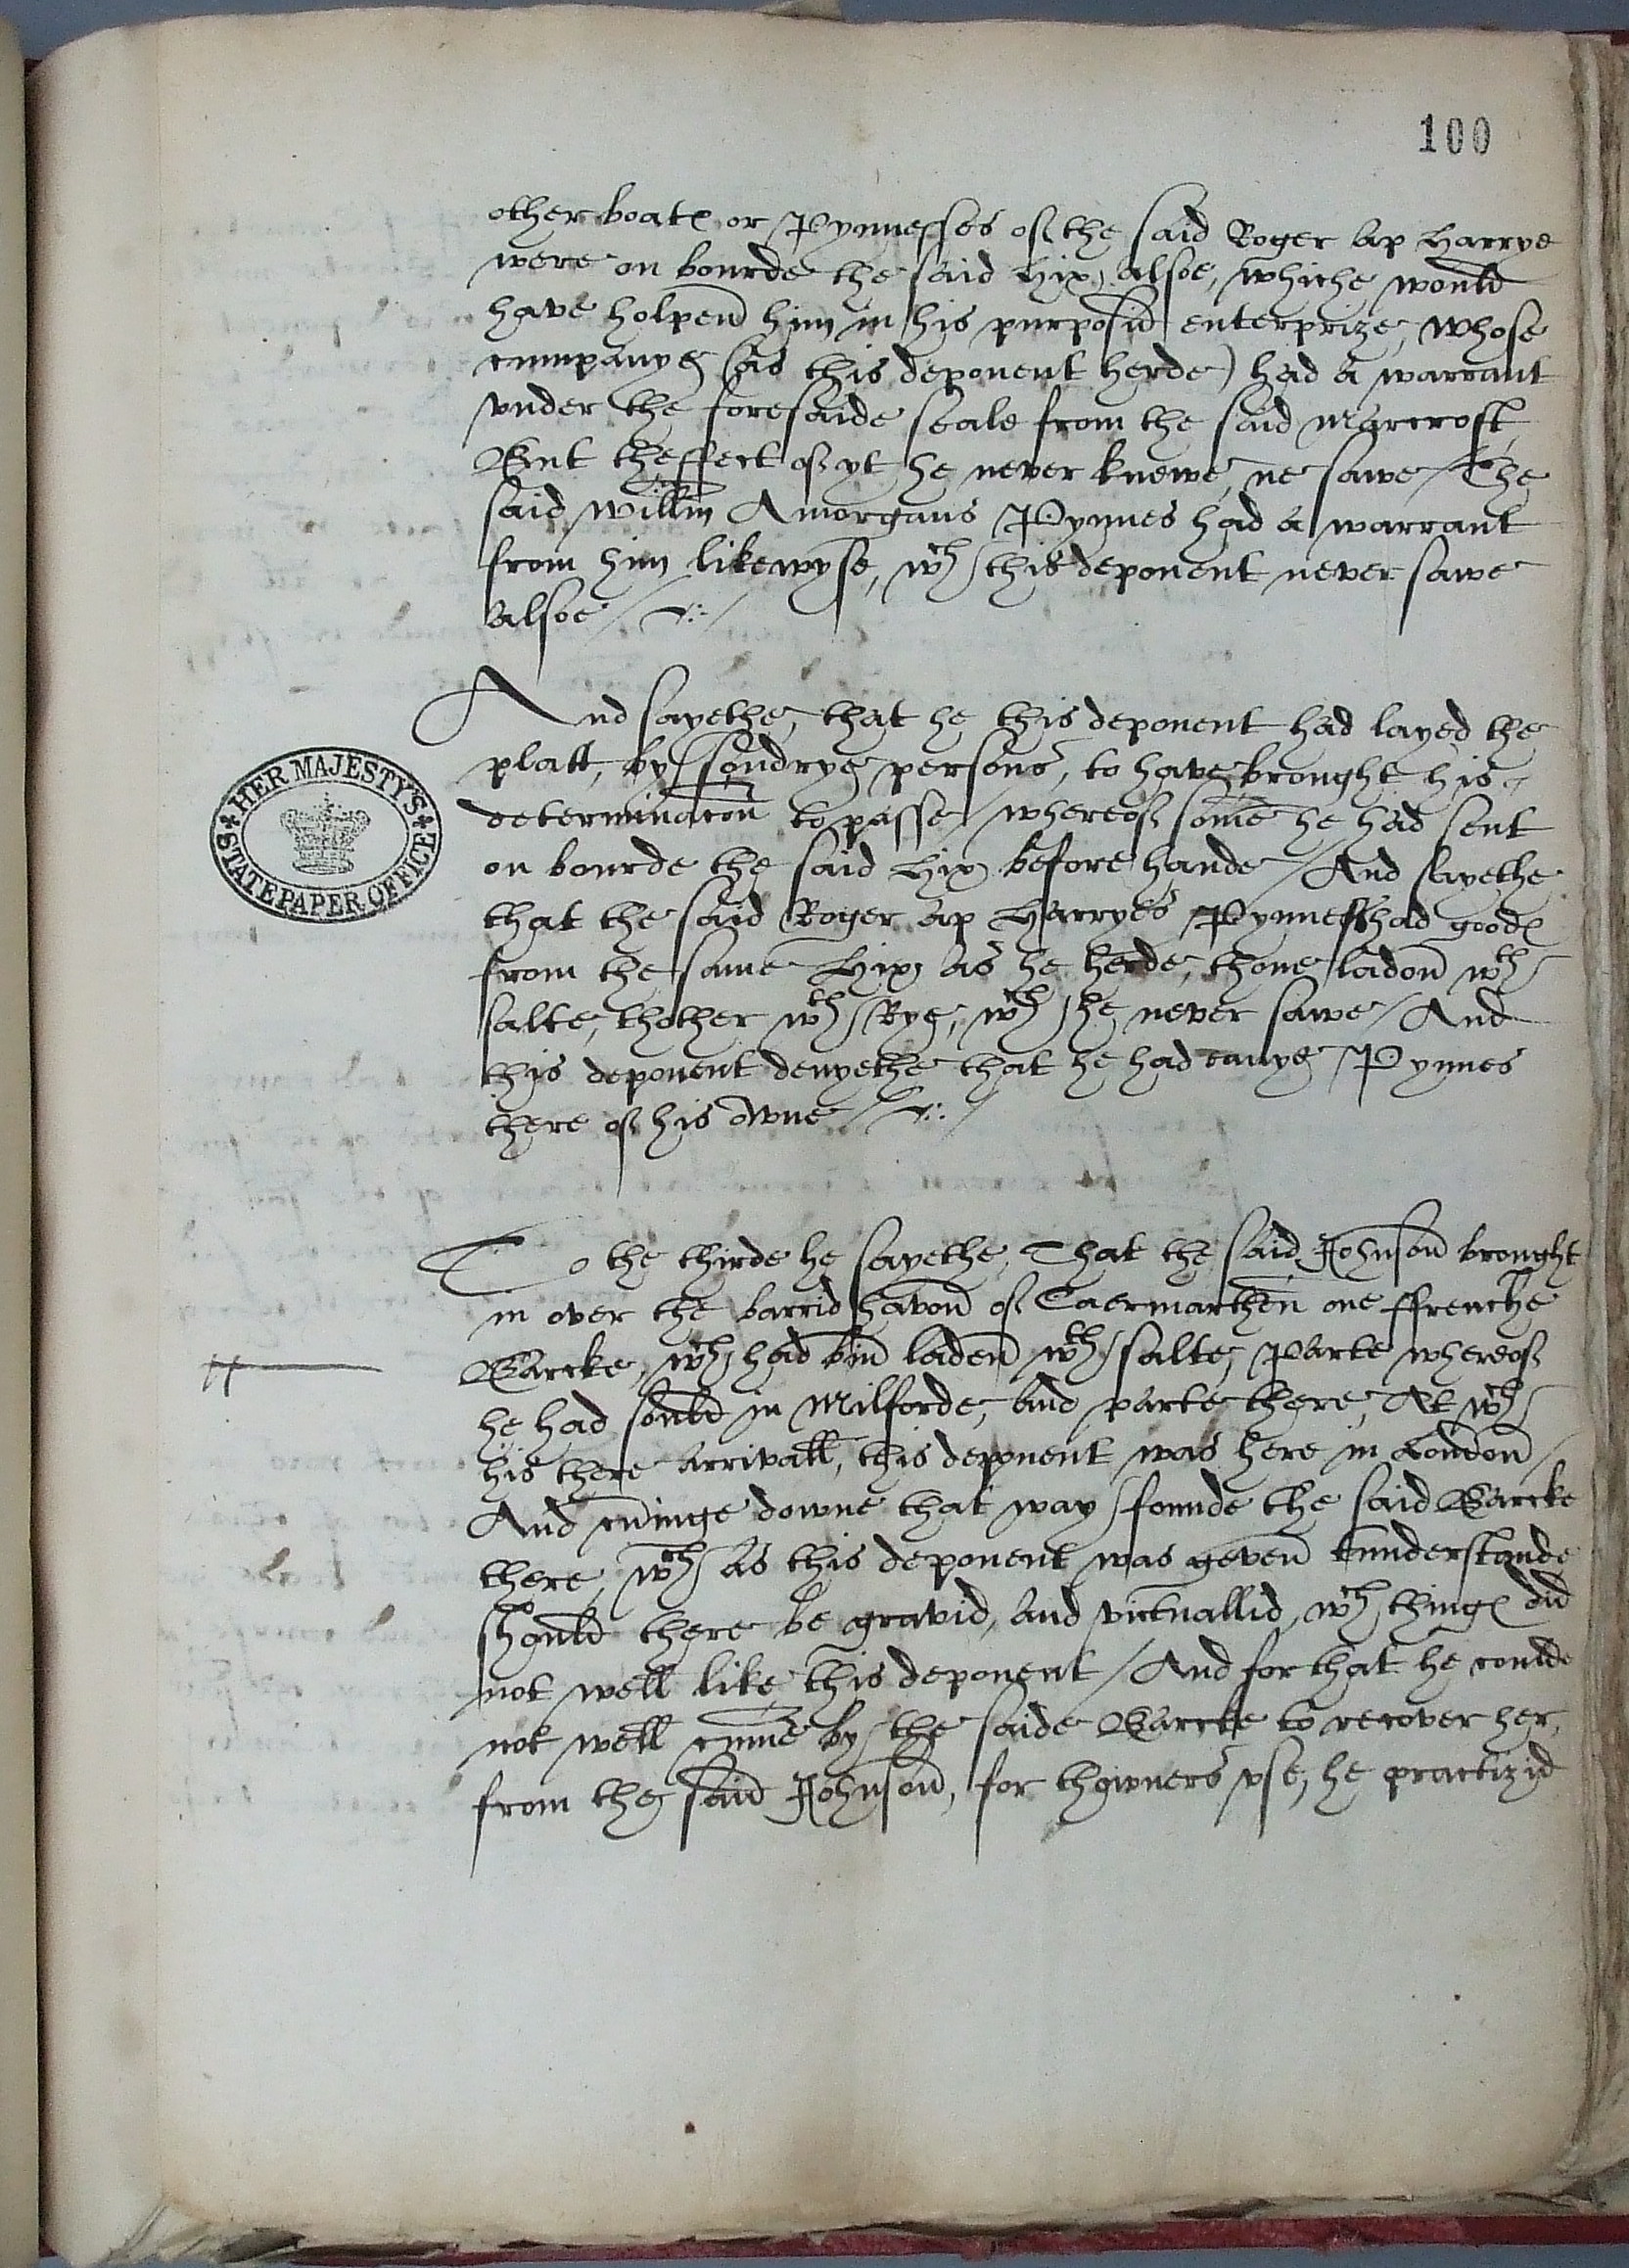 100
other boates or Pynnesses of the said Roger ap Harrye
were on bourde the said Hix, alsoe, whiche would
have holpen him in his purposid enterprize, whose
cumpanye (as this deponent herde) had a warrant
vnder the foresaide seale from the said Marcroft,
But theffect of yt he never knewe, ne sawe / The
said Willm Amorgans Pynnes had a warrant
from him likewyse, wch this deponent never sawe
alsoe /
And sayethe, that he this deponent had layed the
platt, by sondrye persons, to have brought his
determinacon to passe, whereof some he had sent
on bourde the said Hix before hande / And sayethe
that the said Roger ap Harryes Pynness had goodes
from the same Hix, as he herde, thone ladon wth
salte, thother wth Rye, wch he never sawe / And
this deponent denyethe that he had eanye Pynnes
there of his owne /
HER MAJESTY'S
STATE PAPER OFFICE
To the thirde he sayethe, That the said Johnson brought
in over the barrid havon of Caermarthen one ffrenche
Barcke, wch had bin laden wth salte, Parte whereof
he had sould in Milforde, and parte there, At wch
his there arrivall, this deponent was here in London /
And cuminge downe that way, founde the said Barcke
there, wch as this deponent was geven tunderstande
should there be gravid, and victuallid, wch thinges did
not well like this deponent / And for that he coulde
not well cume by the saide Barcke to recover her,
from the said Johnson, for thowners vse, he practizid